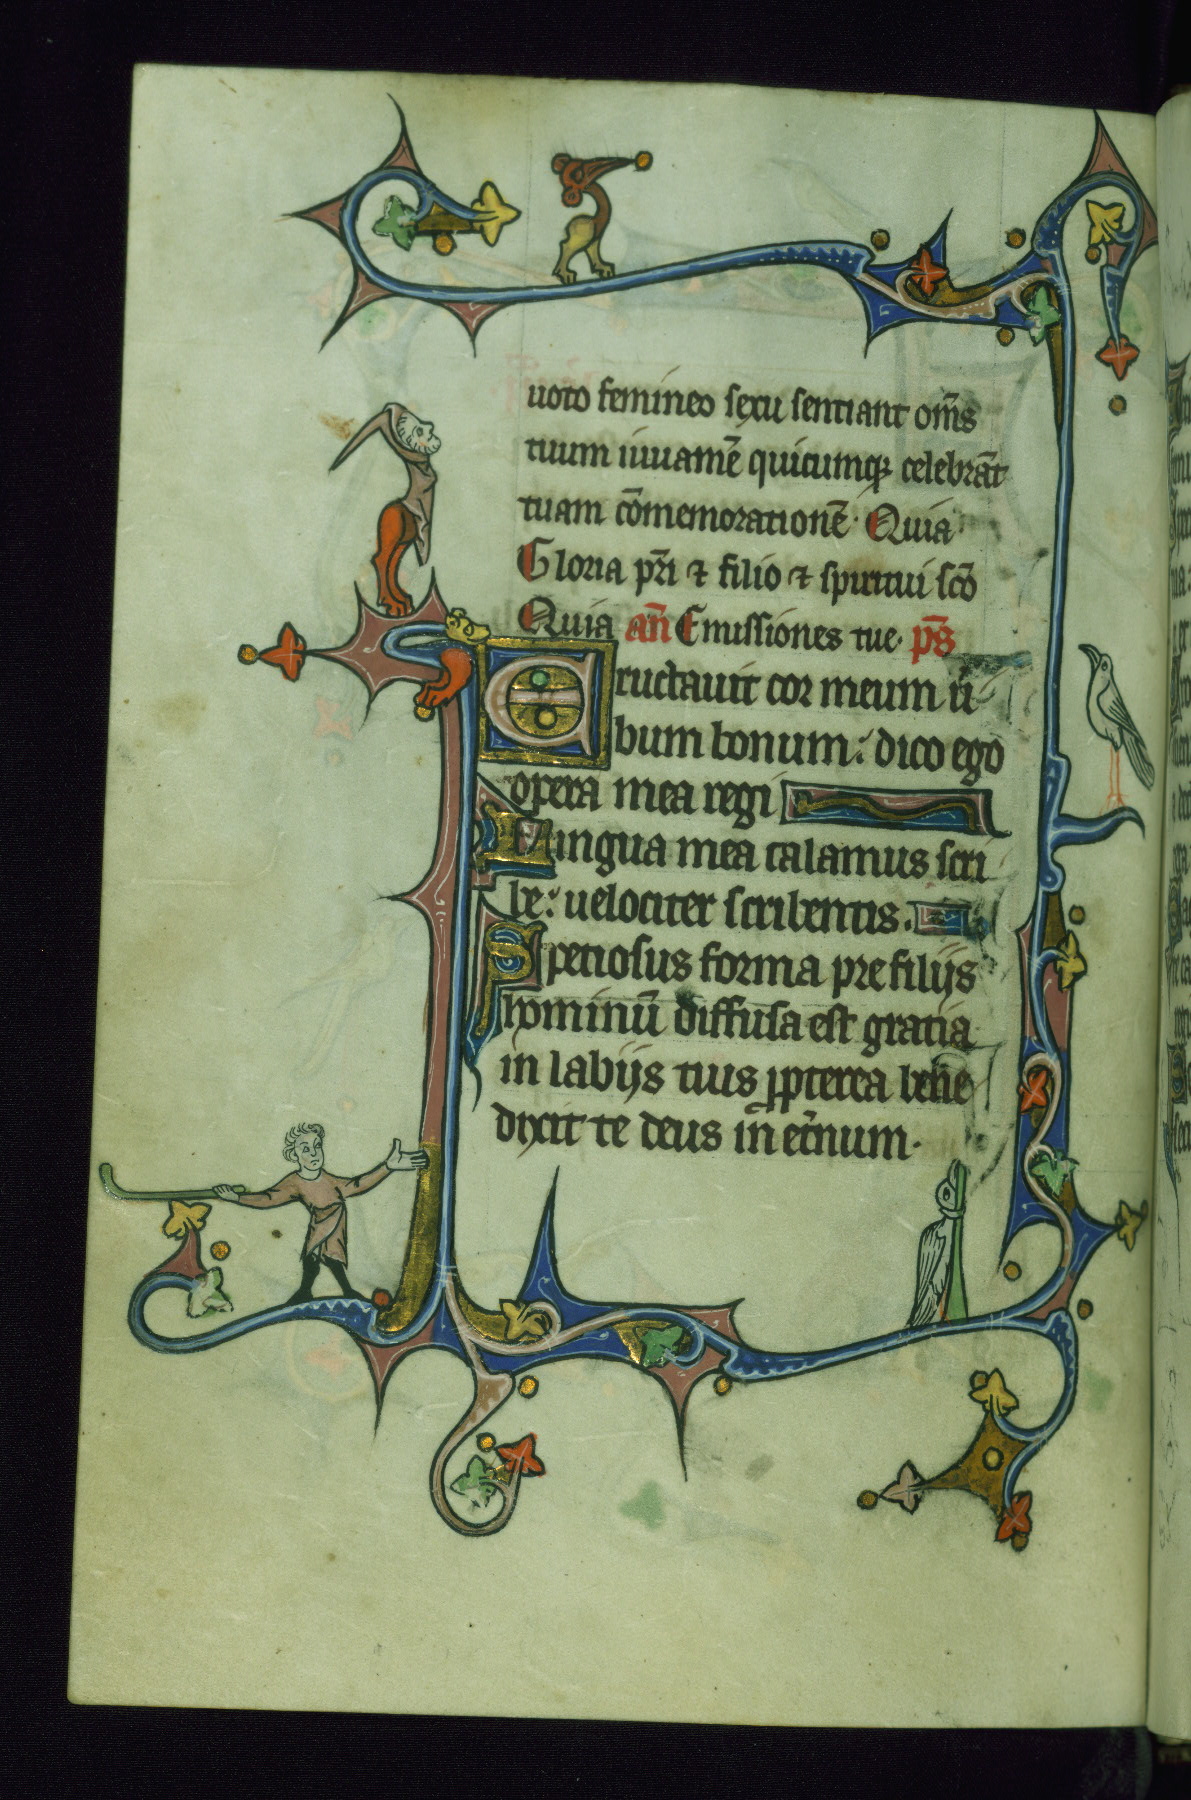 uoto femineo sexu sentiant om̄s
tuum iuuamē quicumq; celebrāt
tuam cōmemorationē. Quia
Gloria pr̄i ⁊ filio ⁊ spiritui scō
Quia an̄ Emissiones tue. ps̄
Eructauit cor meum ū
bum bonum: dico ego
opera mea regi
Lingua mea calamus scri
be: uelociter scribentis.
Speciosus forma pre filijs
hominū diffusa est gratia
in labijs tuis ꝓpterea bene
dixit te deus in et̄num.